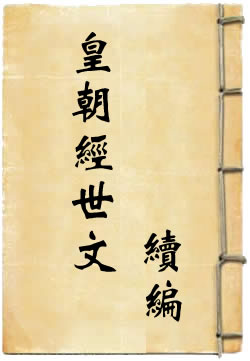 皇朝經世文
續編